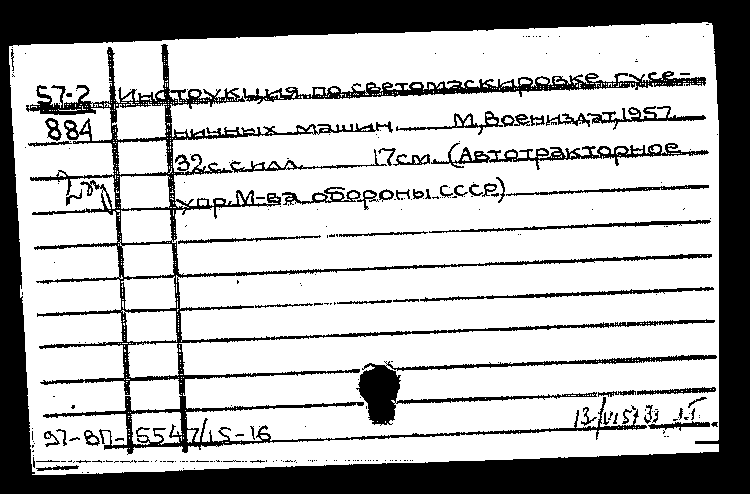 57-2 Инструкция по светомаскировке гусе-
884 ничных машин. М, Воениздат, 1957.
32с. с илл. 17см. (Автотракторное
2эк
упр. М-ва обороны СССР)
97-ВП-5547/15-16